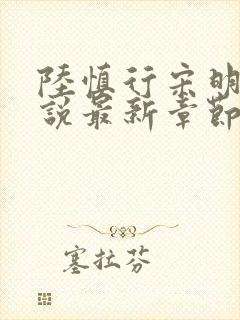 陸慎行宋明
說最新章節
塞拉芬